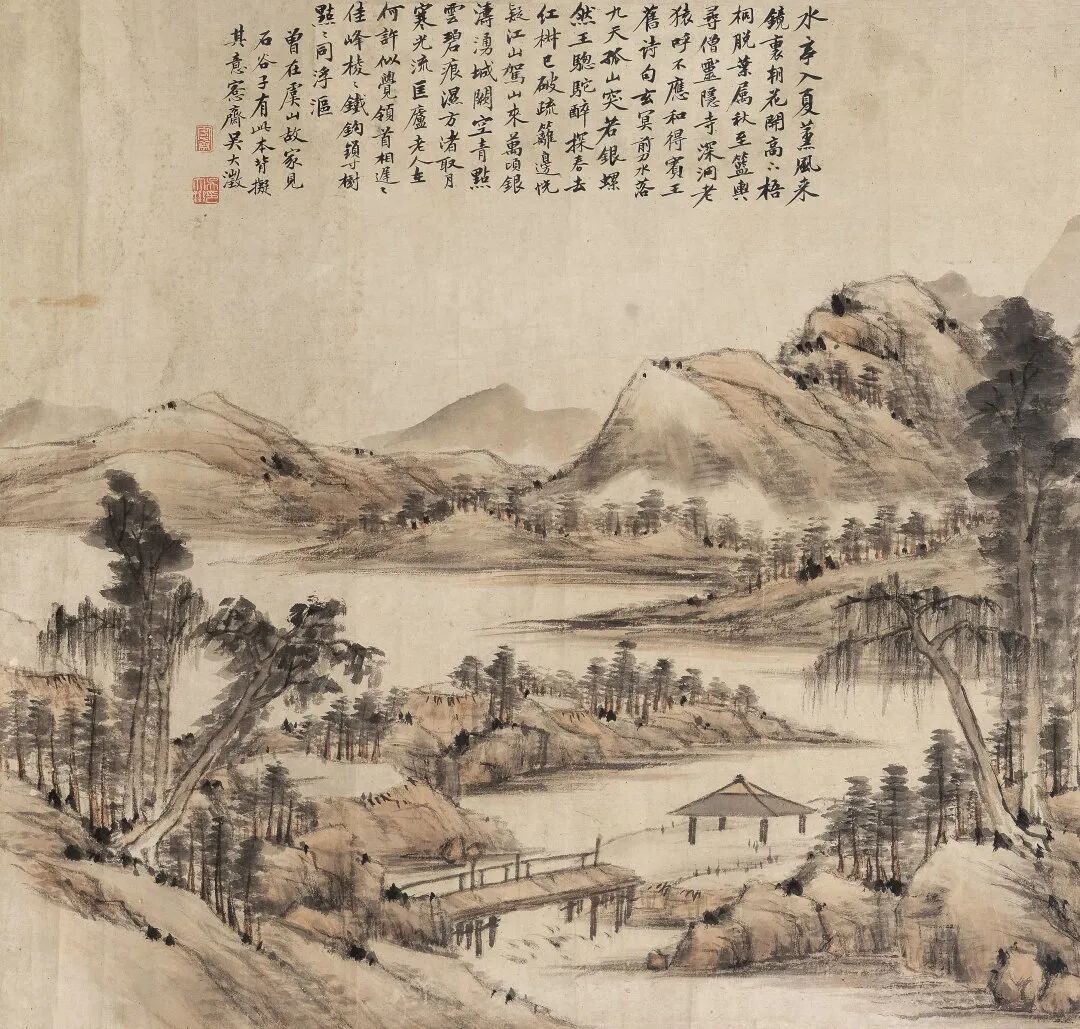 水亭入夏薰風来
鏡裏朝花開高〻梧
桐脫葉屬秋至籃輿
尋僧靈隱寺深洞老
猿呼不應和得賓王
舊詩句玄冥剪水落
九天孤山突若銀螺
然玉驄駝醉探春去
紅樹已破疏籬邊恍
疑江山駕山來萬頃銀
濤湧城闕空青點
雲碧痕濕方渚取月
寒光流匡廬老人在
何許似覺領首相遲〻
佳峰棱〻鐵鉤鎖寸樹
點〻同浮漚
曾在虞山故家見
石谷子有此本背擬
其意愙齋吳大澂